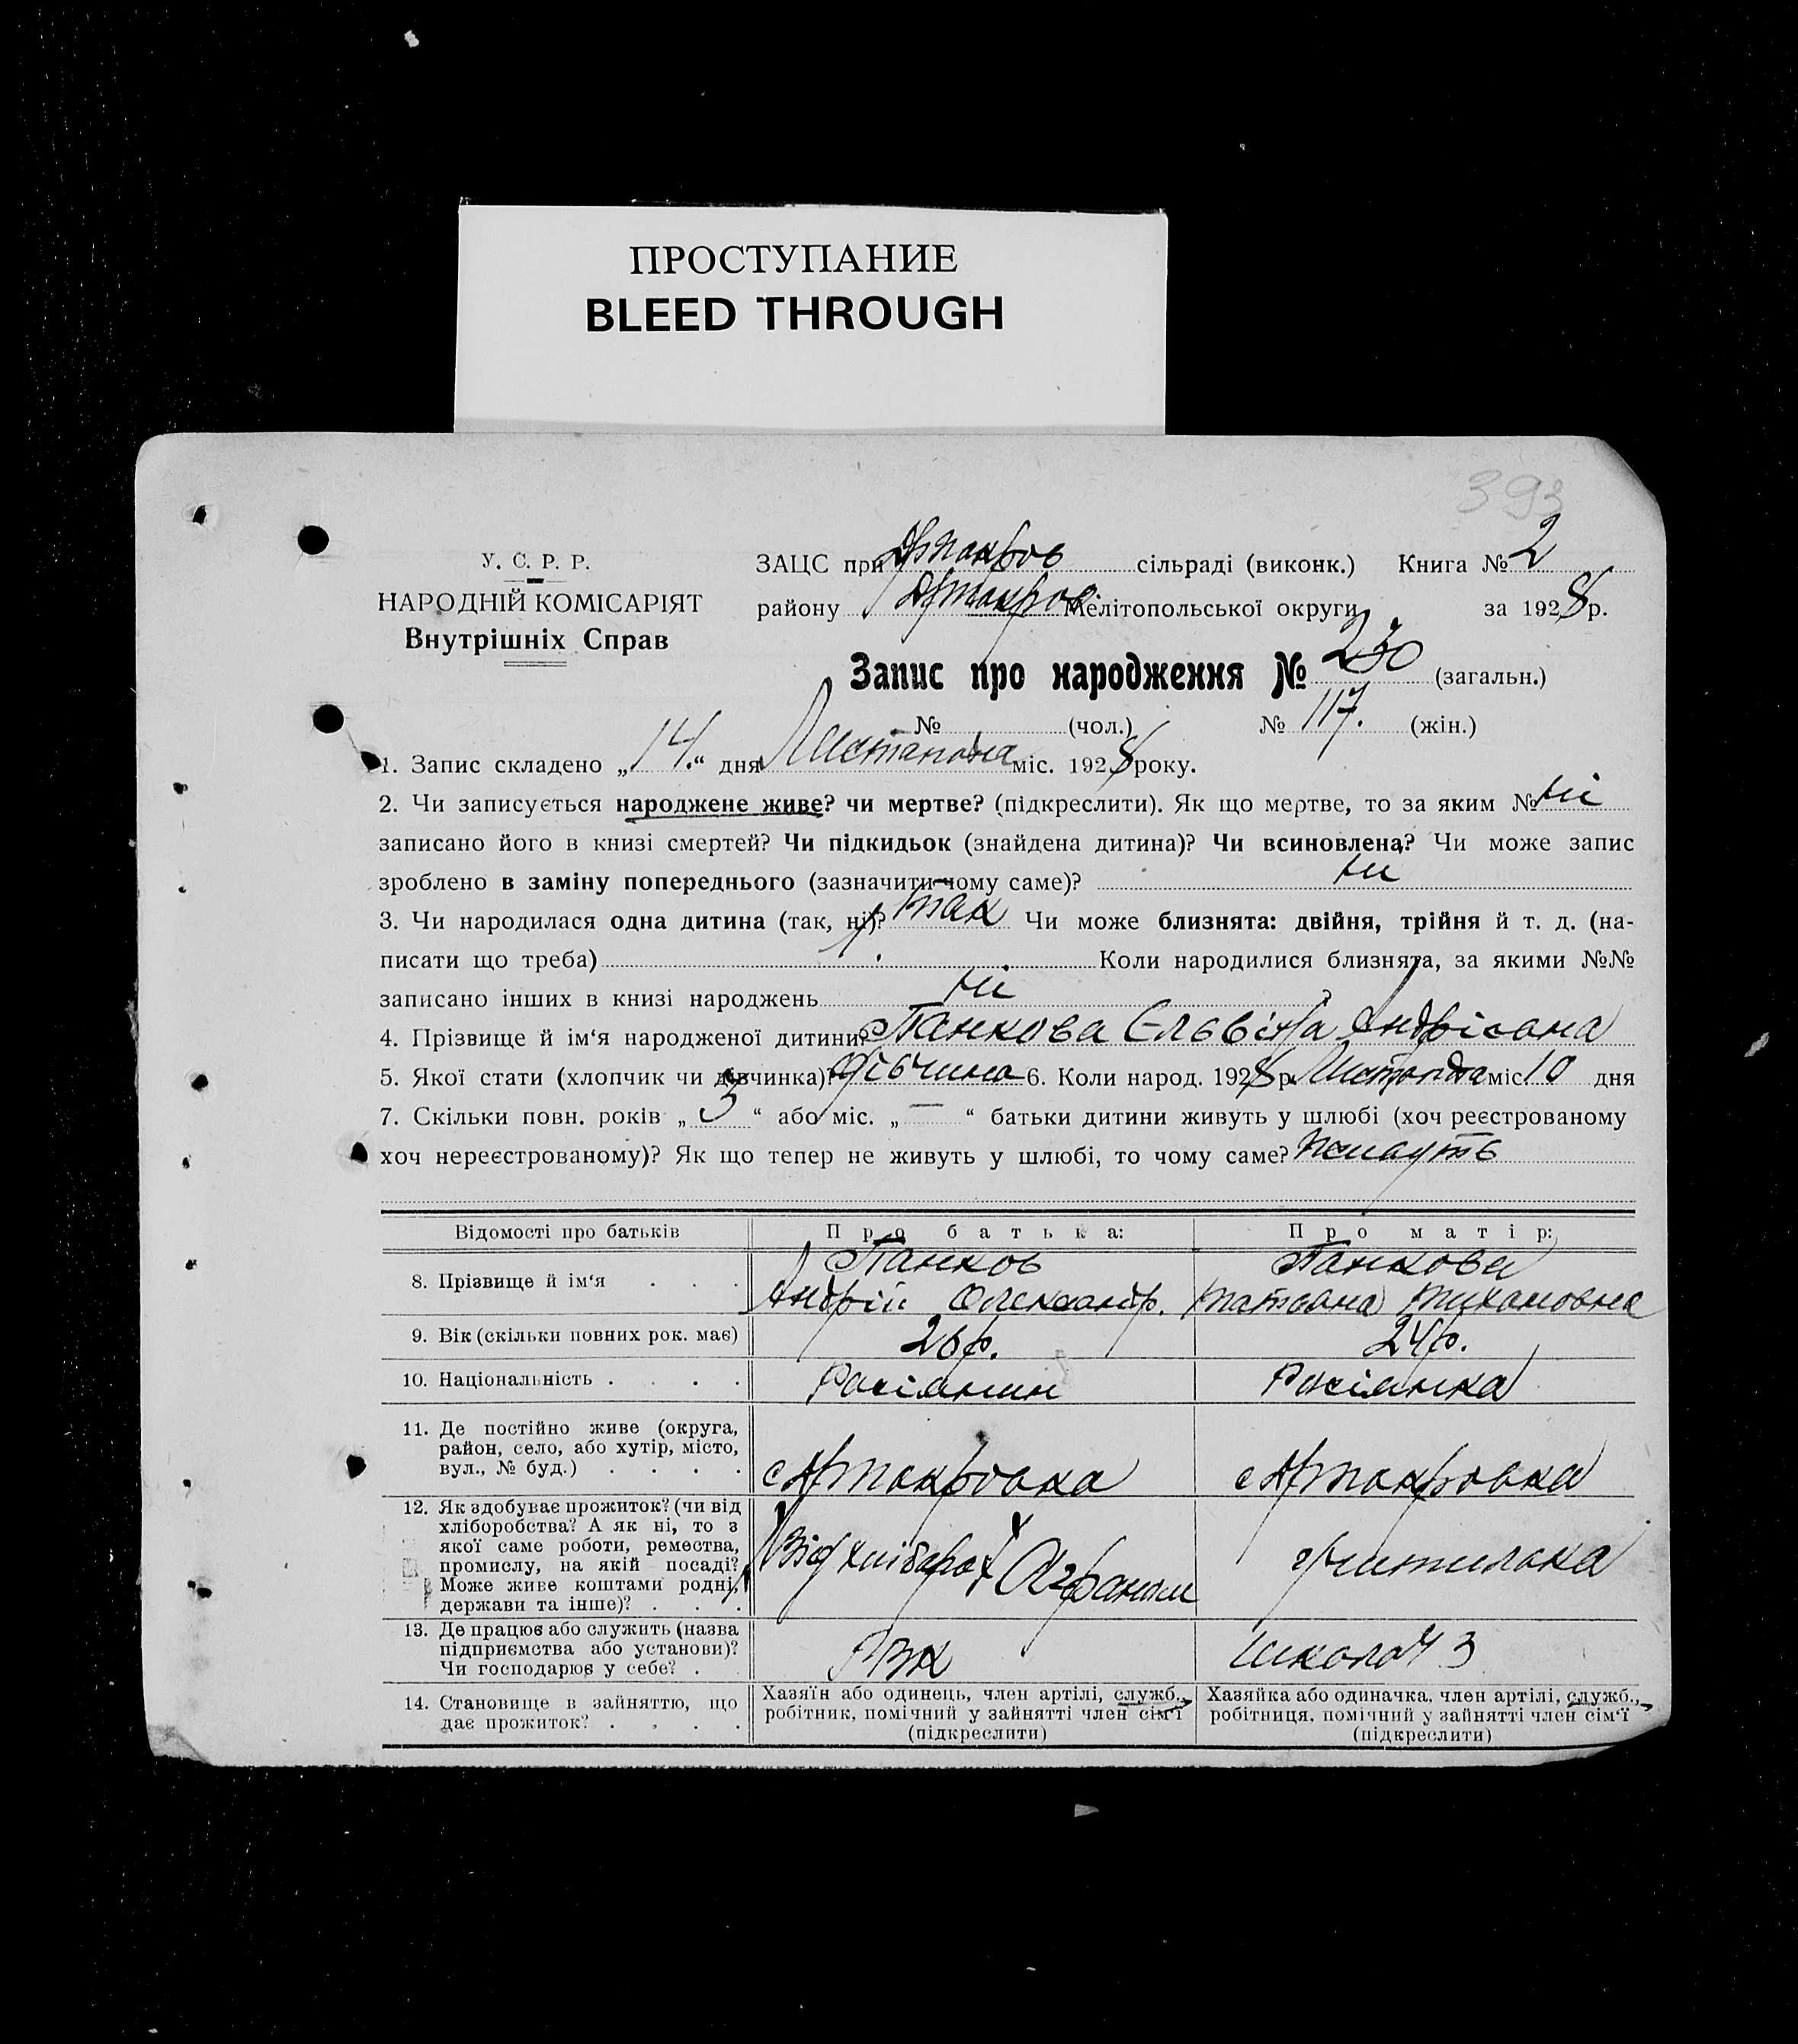 ПРОСТУПАНИЕ
BLEED THROUGH
393
У. С. Р. Р.
НАРОДНІЙ КОМІСАРІЯТ
Внутрішніх Справ
ЗАЦС при сільраді (виконк.) Книга № 2
району Мелітопольської округи за 1928 р.
Запис про народження № 230 (загальн.)
№ (чол.) № 117. (жін.)
1. Запис складено „14.“ дня Листапода міс. 1928 року.
2. Чи записується народжене живе? чи мертве? (підкреслити). Як що мертве, то за яким № ні
записано його в книзі смертей? Чи підкидьок (знайдена дитина)? Чи всиновлена? Чи може запис
зроблено в заміну попереднього (зазначити чому саме)? ні
3. Чи народилася одна дитина (так, ні)? так Чи може близнята: двійня, трійня й т. д. (на-
писати що треба) Коли народилися близнята, за якими №№
записано інших в книзі народжень ні
4. Прізвище й ім‘я народженої дитини? Панкова
5. Якої стати (хлопчик чи дівчинка)? дівчина 6. Коли народ. 1928 р. Листапода міс. 10 дня
7. Скільки повн. років „ 3 “ або міс. „ — “ батьки дитини живуть у шлюбі (хоч реєстрованому
хоч нереєстрованому)? Як що тепер не живуть у шлюбі, то чому саме?
Відомості про батьків Про батька: Про матір:
8. Прізвище й ім‘я . . . Панков Панкова
Андрій Олександр. Татьяна
9. Вік (скільки повних рок. має) 26 р. 24 р.
10. Національність . . . . Росіянин Росіянка
11. Де постійно живе (округа,
район, село, або хутір, місто,
вул., № буд.) . . . .
12. Як здобуває прожиток? (чи від
хліборобства? А як ні, то з
якої саме роботи, ремества,
промислу, на якій посаді?
Може живе коштами родні,
держави та інше)? . . .
Від хлібороб Агроном
13. Де працює або служить (назва
підприємства або установи)?
Чи господарює у себе? .
РВК школа № 3
14. Становище в зайняттю, що
дає прожиток? . . . .
Хазяїн або одинець, член артілі, служб.,
робітник, помічний у зайнятті член сім‘ї
(підкреслити)
Хазяйка або одиначка, член артілі, служб.,
робітниця, помічний у зайнятті член сім‘ї
(підкреслити)